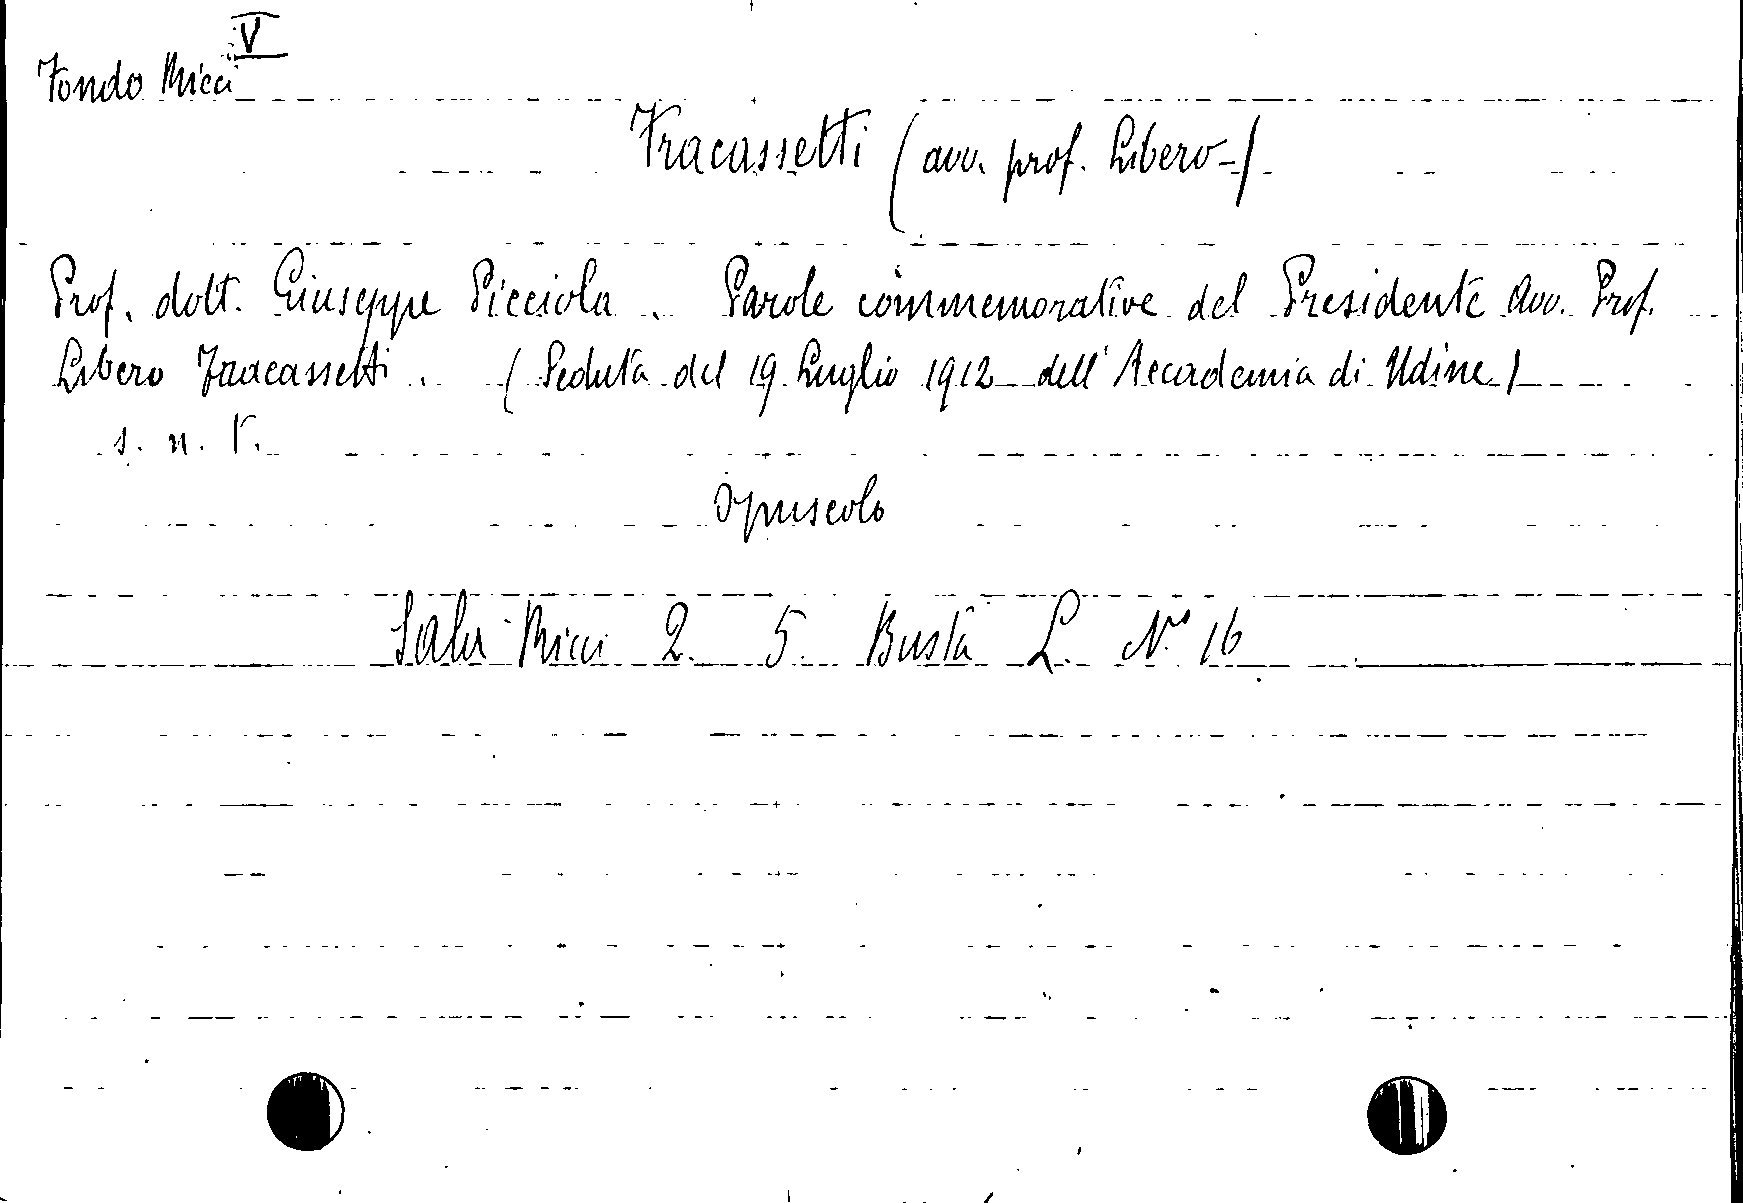 V
Fondo Ricci
Fracassetti (avv. prof. Libero-)
Prof. dott. Giuseppe Picciola. Parole commemorative del Presidente Avv. Prof.
Libero Fracassetti. (Seduta del 19 Luglio 1912 dell'Accademia di Udine)
s. n. t.
Opuscolo
Sala Ricci 2. 5. Busta L. N.° 16